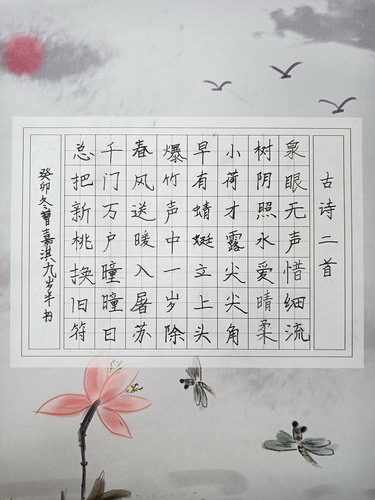 古诗二首
泉眼无声惜细流
树阴照水爱晴柔
小荷才露尖尖角
早有蜻蜓立上头
爆竹声中一岁除
春风送暖入屠苏
千门万户曈曈日
总把新桃换旧符
癸卯冬曾嘉淇九岁半书